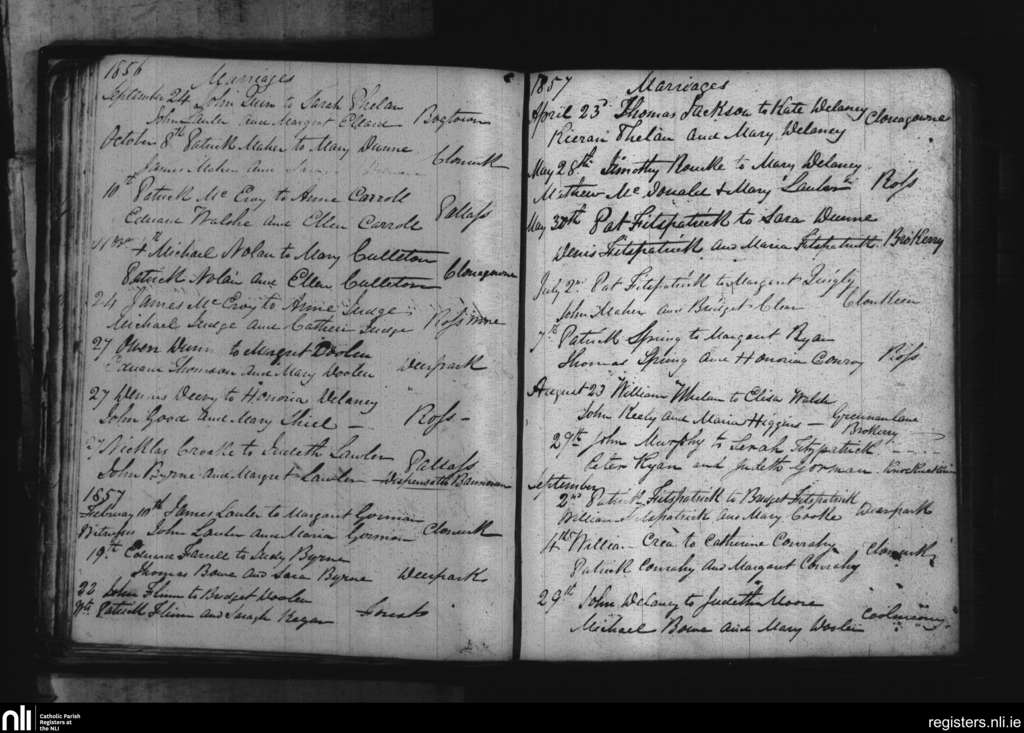 1856
Marriages
September 24 John Quin to Sarah Phelan
John Lawler and Margret Ellard Bogtown
October 8th Patrick Maher to Mary Dunne
James Maher and Clonurk
10th Patrick Mc Evoy to Anne Carroll
Edward Walshe and Ellen Carroll Pallass
Michael Nolan to Mary Culleton
Patrick Nolan and Ellen Culleton Clonagowne
24 James Mc Evoy to Anne Judge
Michael Judge and Catherin Judge Rossmore
27 Owen Dunn to Margret Doolen
Edward Thomson and Mary Doolen Deerpark
27 Dennis Deevy to Honoria Delaney
John Good and Mary Shiel — Ross -
27 Nicklas Crooke to Judith Lawler
John Byrne and Margret Lawler Pallass
1857
February 10th James Lawler to Margaret Gorman
Witnesses John Lawler and Maria Gorman Clonurk
19th Edward Farrell to Judy Byrne
Thomas Bowe and Sara Byrne Deerpark
22 John Flinn to Bridget Doolen
Patrick Flinn and Saragh Regan
1857
Marriages
April 23d Thomas Jackson to Kate Delaney
Kieran Phelan and Mary Delaney Clonagowne
May 28th Timothy Rourke to Mary Delaney
Mathew Mc Donald & Mary Lawlor Ross
May 30th Pat Fitzpatrick to Sara Dunne
Denis Fitzpatrick and Maria Fitzpatrick Brokerry
July 2nd Pat Fitzpatrick to Margaret Quigly
John Maher and Bridget Clonkeen
7th Patrick Spring to Margaret Ryan
Thomas Spring and Honoria Conroy Ross
August 23 William Whelan to Elisa Walsh
John Keely and Maria Higgins — Grennan Lane
Brokerry
27th John Murphy to Sarah Fitzpatrick
Peter Ryan and Judith Gorman
September
2nd Patrick Fitzpatrick to Bridget Fitzpatrick
William Fitzpatrick and Mary Cooke Deerpark
4th William Crea to Catherine Conrahy
Patrick Conrahy and Margaret Conrahy Clonurk
29th John Delaney to Judith Moore
Michael Bowe and Mary Coolnacony
nli
Catholic Parish
Registers at
the NLI
registers.nli.ie